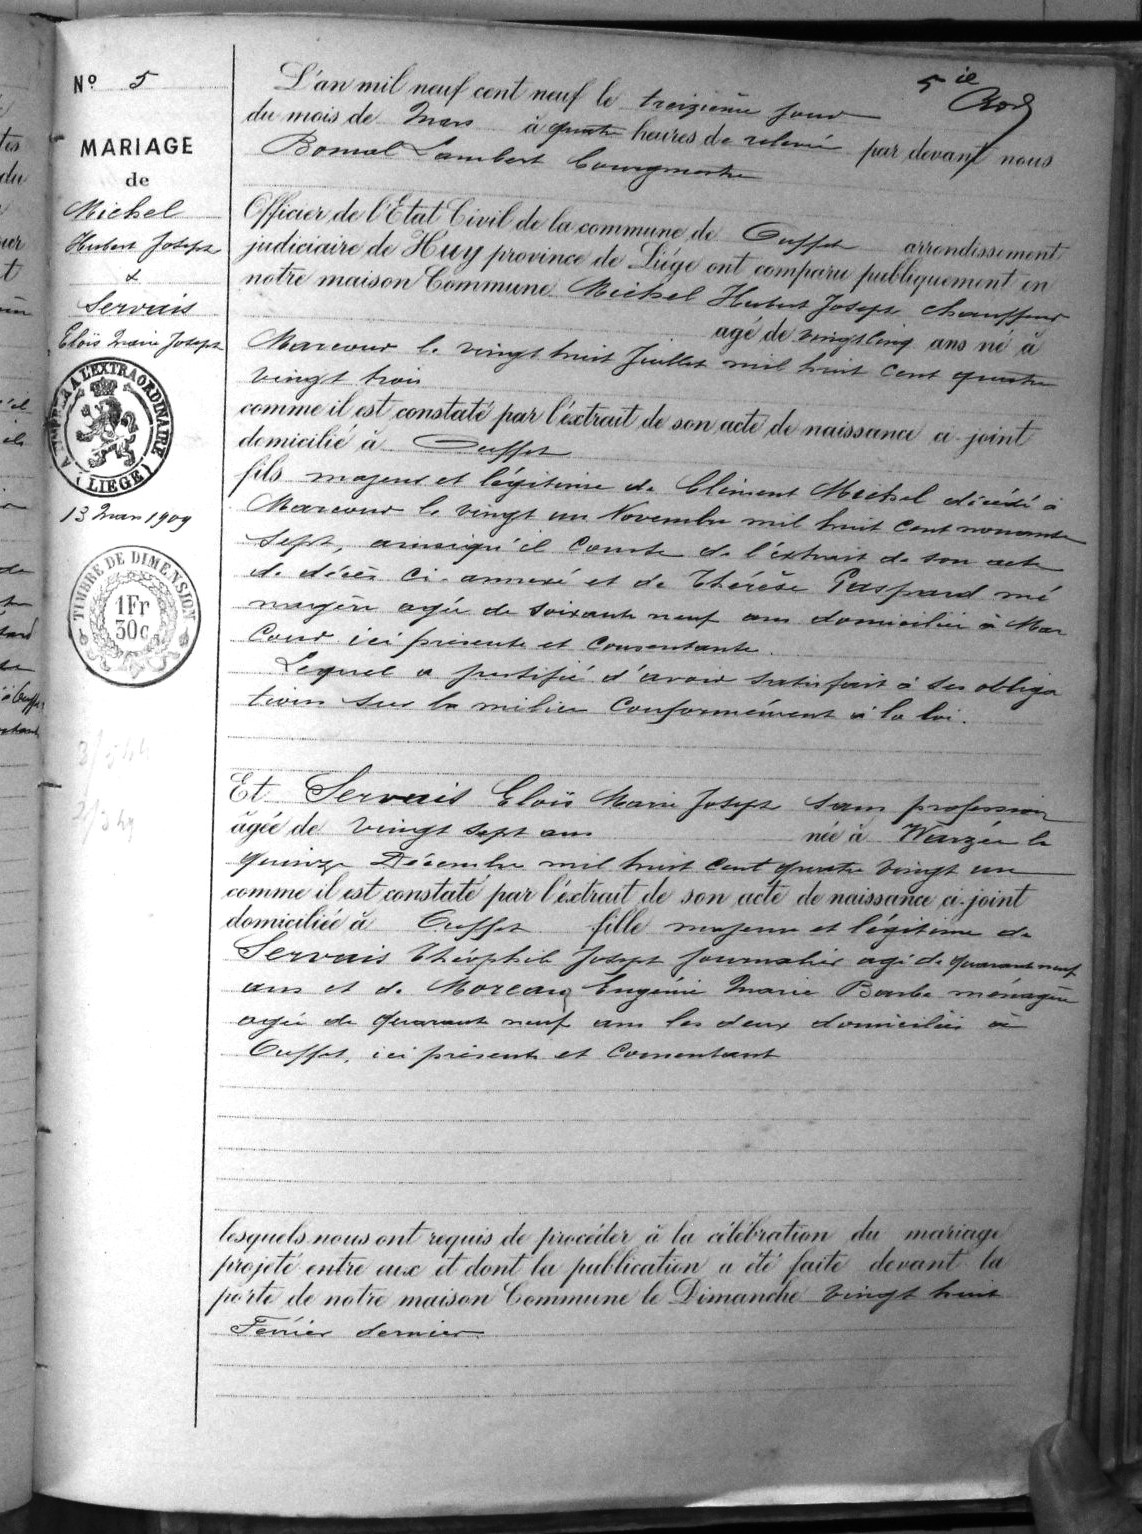 Nº 5
MARIAGE
de
Michel
Hubert Joseph
&
Servais
Eloïs Marie Joseph
A TIMBRER A L'EXTRAORDINAIRE
(LIEGE)
13 Mars 1909
TIMBRE DE DIMENSION
1Fr
30c
5ie
L'an mil neuf cent neuf le treizième jour
du mois de Mars à quatre heures de relevée par devant nous
Bomal Lambert Bourgmestre
Officier de l'Etat Civil de la commune de Ouffet arrondissement
judiciaire de Huy province de Liége ont comparu publiquement en
notre maison Commune Michel Hubert Joseph chauffeur
agé de vingt cinq ans né à
Marcour le vingt huit Juillet mil huit cent quatre
vingt trois
comme il est constaté par l'extrait de son acte de naissance ci-joint
domicilié à Ouffet
fils majeur et légitime de Clément Michel décédé à
Marcour le vingt un Novembre mil huit cent nonante
sept, ainsiqu'il conste de l'extrait de son acte
de décès ci-annexé et de Thérèse Gaspard mé
nagère agée de soixante neuf ans domiciliée à Mar
cour ici présente et consentante.
Lequel a justifié d'avoir satisfait à ses obliga
tions sur la milice conformément à la loi.
Et Servais Eloïs Marie Joseph sans profession
âgée de vingt sept ans née à Warzée le
quinze Décembre mil huit cent quatre vingt un
comme il est constaté par l'extrait de son acte de naissance ci-joint
domiciliée à Ouffet fille majeure et légitime de
Servais Théophile Joseph journalier agé de quarante neuf
ans et de Moreau Eugénie Marie Barbe ménagère
agée de quarante neuf ans les deux domiciliés à
Ouffet, ici présents et consentant
lesquels nous ont requis de procéder à la célébration du mariage
projeté entre eux et dont la publication a été faite devant la
porte de notre maison Commune le Dimanche vingt huit
Février dernier